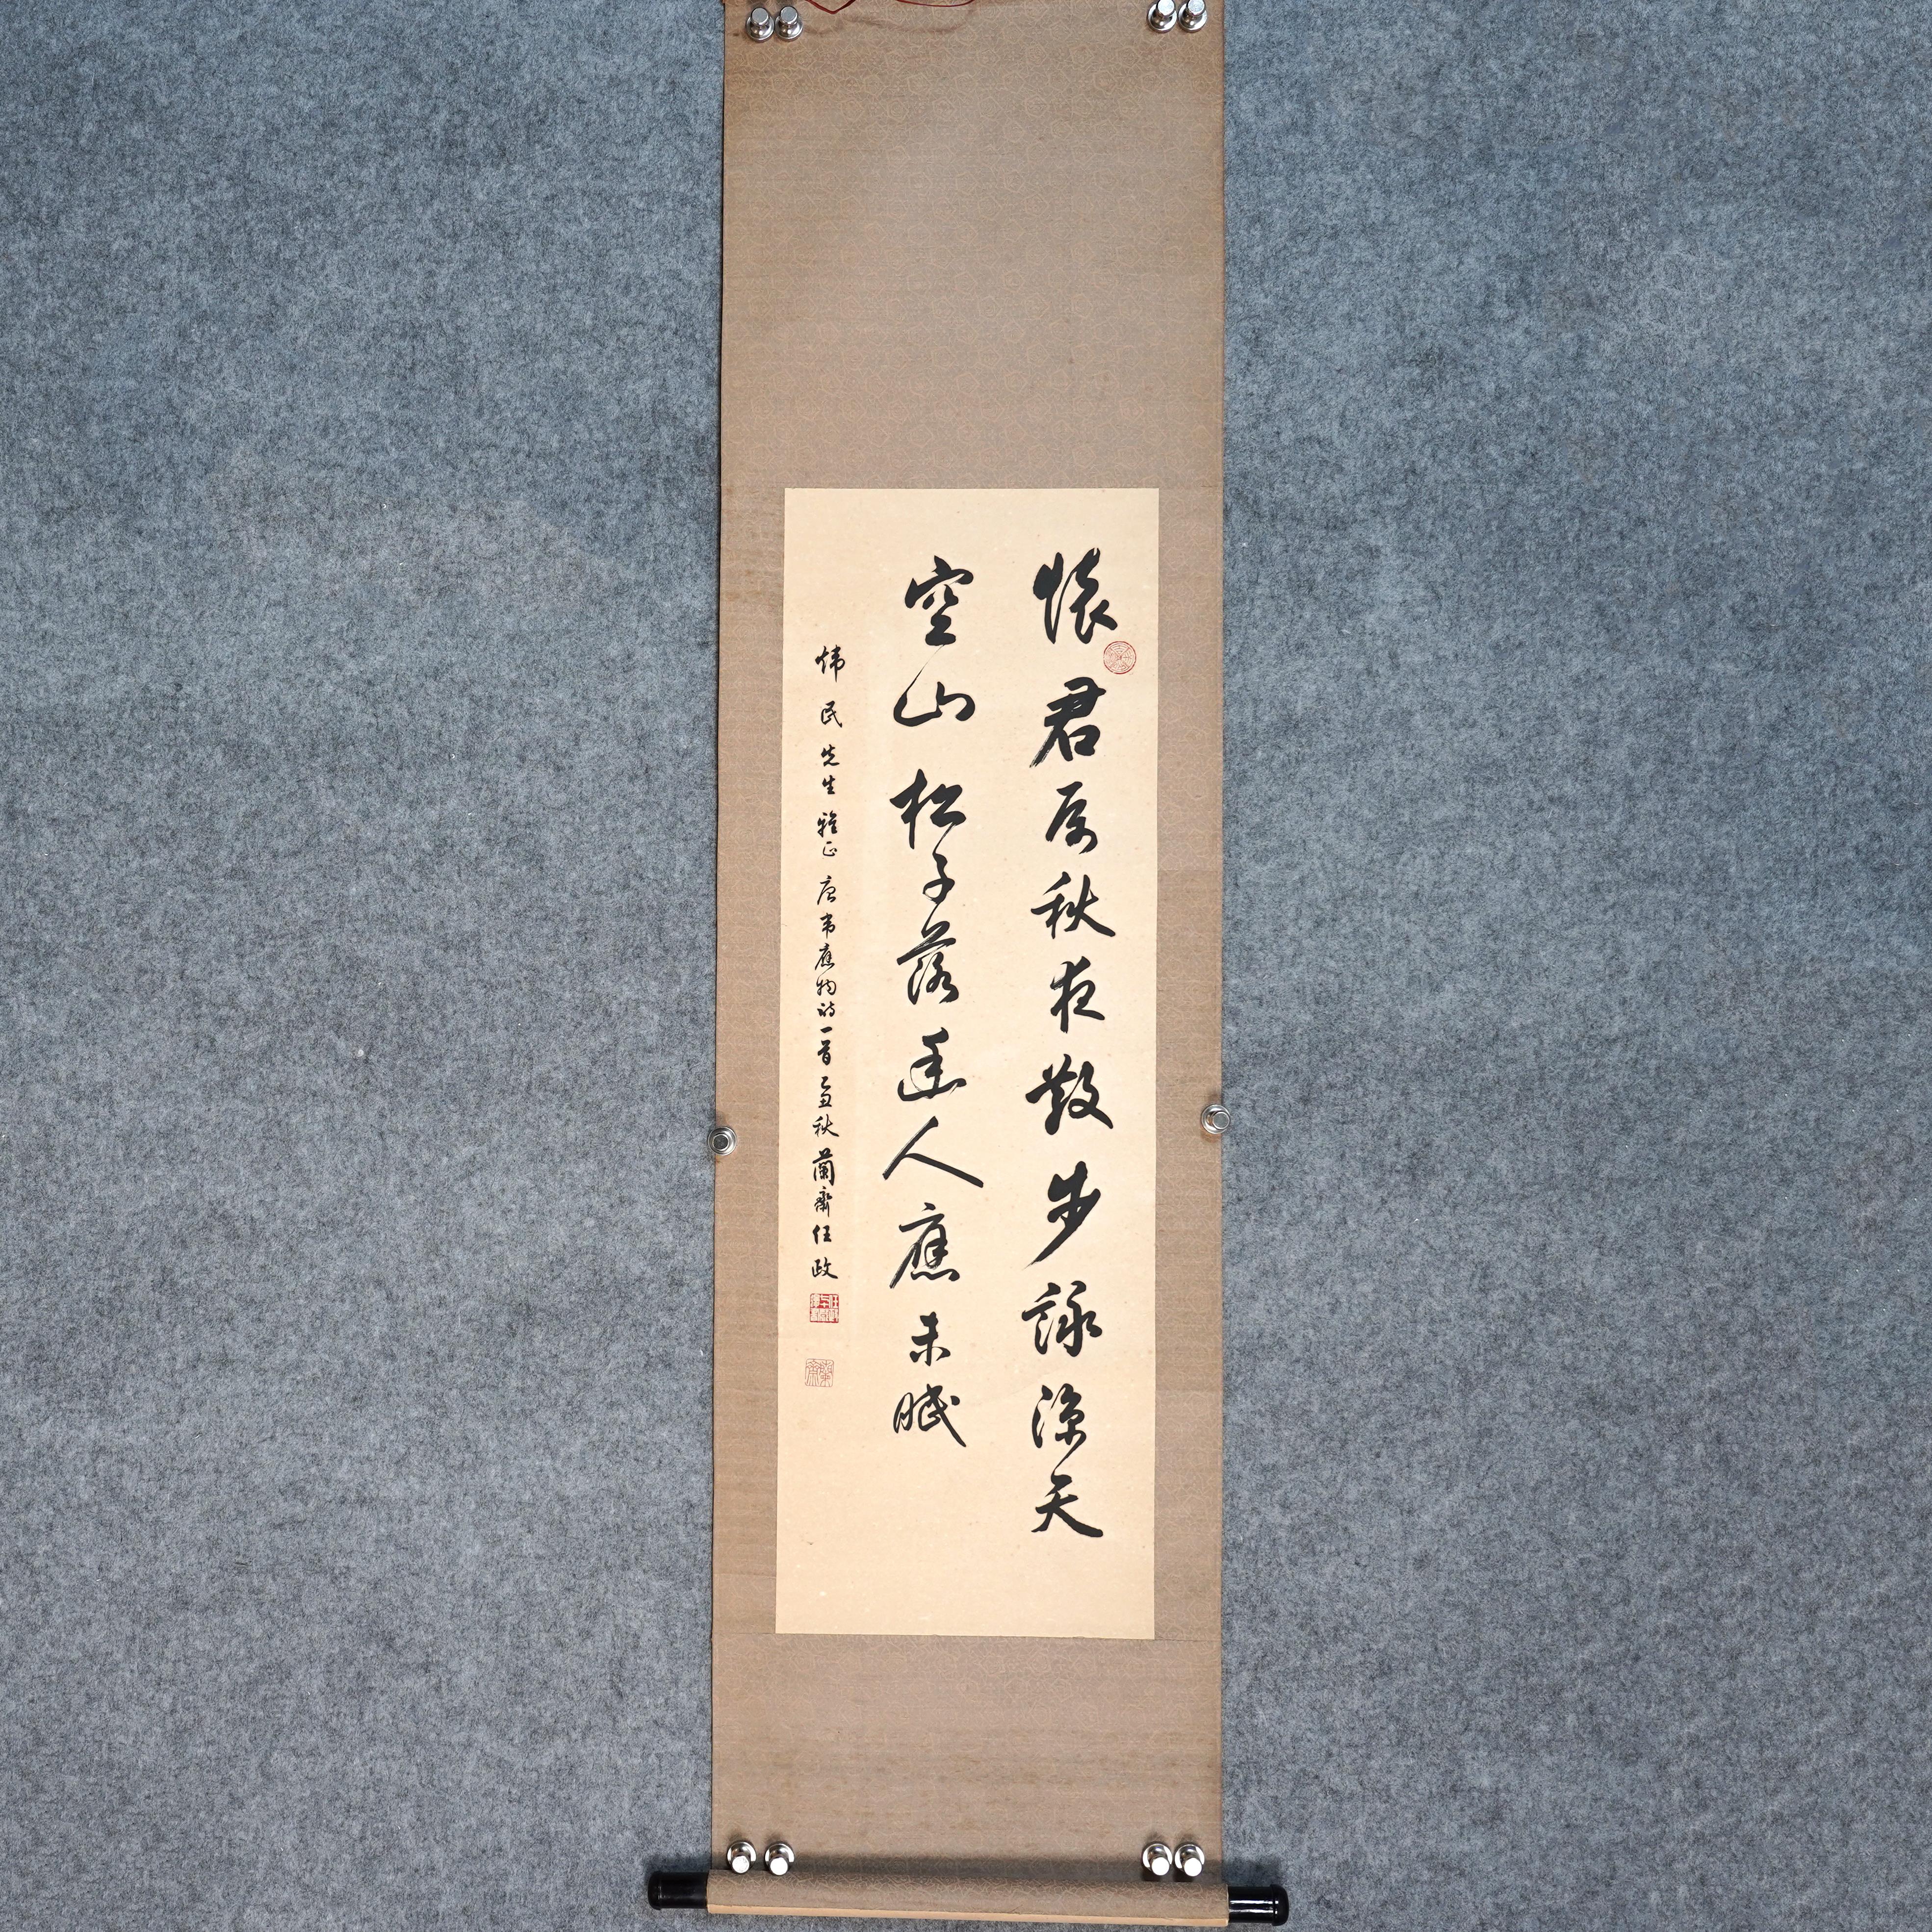 懷君屬秋夜散步詠涼天
空山松子落幽人應未眠
煒民先生雅正 唐韋應物詩一首 乙丑秋 蘭齋任政